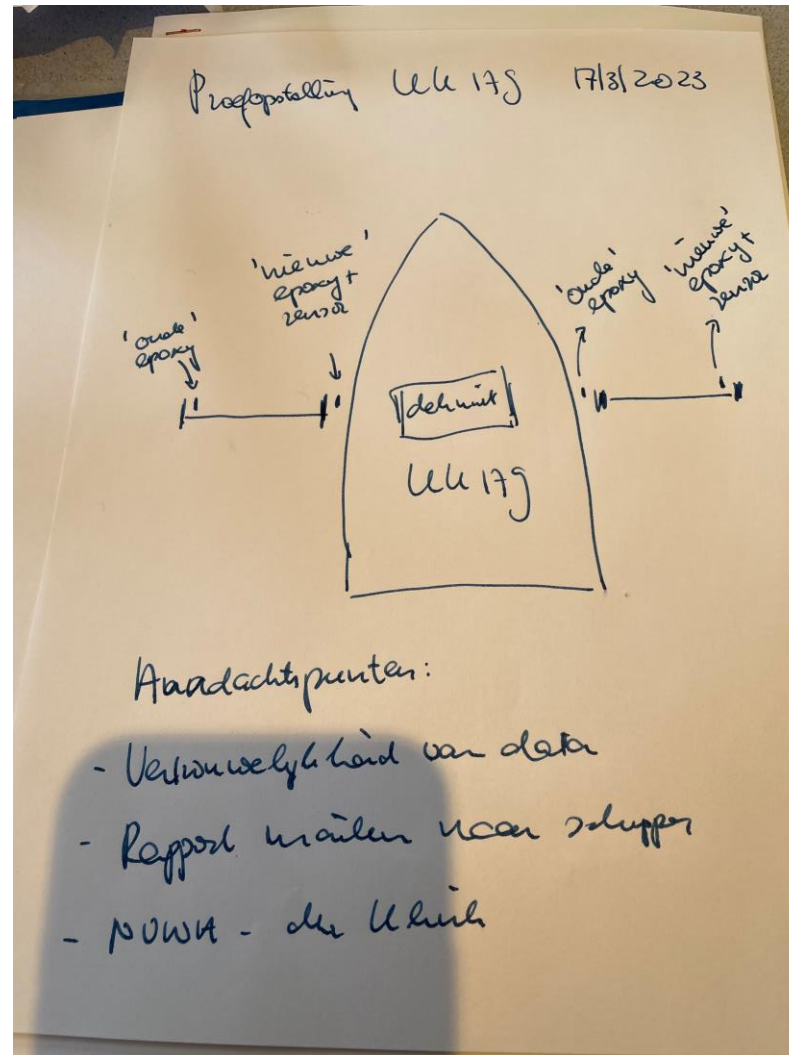 Proefopstelling UK 179 17/3/2023
'oude'
epoxy
'nieuwe'
epoxy +
sensor
'oude'
epoxy
'nieuwe'
epoxy +
sensor
UK 179
Aandachtspunten:
- Vertrouwelijkheid van data
- Rapport mailen naar schipper
- NVWA - de